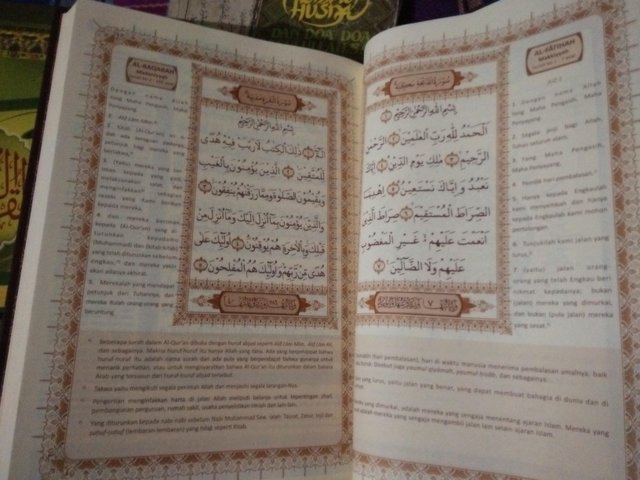 HUSNA
DAN DOA DOA
AL-FĀTIḤAH
Makkiyyah
JUZ 1
سُورَةُ الْفَاتِحَةِ مَكِّيَّة
بِسْمِ اللّٰهِ الرَّحْمٰنِ الرَّحِيْمِ ١
اَلْحَمْدُ لِلّٰهِ رَبِّ الْعٰلَمِيْنَ ٢ الرَّحْمٰنِ
الرَّحِيْمِ ٣ مٰلِكِ يَوْمِ الدِّيْنِ ٤ اِيَّاكَ
نَعْبُدُ وَاِيَّاكَ نَسْتَعِيْنُ ٥ اِهْدِنَا
الصِّرَاطَ الْمُسْتَقِيْمَ ٦ صِرَاطَ الَّذِيْنَ
اَنْعَمْتَ عَلَيْهِمْ غَيْرِ الْمَغْضُوْبِ
عَلَيْهِمْ وَلَا الضَّاۤلِّيْنَ ٧
1. Dengan nama Allah
Yang Maha Pengasih, Maha
Penyayang.
2. Segala puji bagi Allah,
Tuhan seluruh alam,
3. Yang Maha Pengasih,
Maha Penyayang,
4. Pemilik hari pembalasan.
5. Hanya kepada Engkaulah
kami menyembah dan hanya
kepada Engkaulah kami mohon
pertolongan.
6. Tunjukilah kami jalan yang
lurus,
7. (yaitu) jalan orang-
orang yang telah Engkau beri
nikmat kepadanya; bukan
(jalan) mereka yang dimurkai,
dan bukan (pula jalan) mereka
yang sesat.
(hari pembalasan), hari di waktu manusia menerima pembalasan amalnya, baik
Disebut juga yaumul qiyamah, yaumul hisab, dan sebagainya.
jalan yang lurus, yaitu jalan yang benar, yang dapat membuat bahagia di dunia dan di
yang dimurkai, adalah mereka yang sengaja menentang ajaran Islam. Mereka yang
sesat adalah mereka yang sengaja mengambil jalan lain selain ajaran Islam.
AL-BAQARAH
Madaniyyah
سُورَةُ الْبَقَرَةِ مَدَنِيَّة
بِسْمِ اللّٰهِ الرَّحْمٰنِ الرَّحِيْمِ
الۤمّۤ ١ ذٰلِكَ الْكِتٰبُ لَا رَيْبَ فِيْهِ هُدًى
لِّلْمُتَّقِيْنَ ٢ الَّذِيْنَ يُؤْمِنُوْنَ بِالْغَيْبِ
وَيُقِيْمُوْنَ الصَّلٰوةَ وَمِمَّا رَزَقْنٰهُمْ يُنْفِقُوْنَ ٣
وَالَّذِيْنَ يُؤْمِنُوْنَ بِمَآ اُنْزِلَ اِلَيْكَ وَمَآ اُنْزِلَ مِنْ
قَبْلِكَ وَبِالْاٰخِرَةِ هُمْ يُوْقِنُوْنَ ٤ اُولٰۤىِٕكَ عَلٰى
هُدًى مِّنْ رَّبِّهِمْ وَاُولٰۤىِٕكَ هُمُ الْمُفْلِحُوْنَ ٥
Dengan nama Allah
Yang Maha Pengasih, Maha
Penyayang.
1. Alif Lām Mīm.
2. Kitab (Al-Qur'an) ini tidak
ada keraguan padanya;
petunjuk bagi mereka yang
bertakwa,
3. (yaitu) mereka yang ber-
iman kepada yang gaib,
melaksanakan salat, dan
menginfakkan sebagian
rezeki yang Kami berikan
kepada mereka,
4. dan mereka beriman
kepada (Al-Qur'an) yang di-
turunkan kepadamu
(Muhammad) dan (kitab-kitab)
yang telah diturunkan sebelum
engkau, dan mereka yakin
akan adanya akhirat.
5. Merekalah yang mendapat
petunjuk dari Tuhannya, dan
mereka itulah orang-orang yang
beruntung.
Beberapa surah dalam Al-Qur'an dibuka dengan huruf abjad seperti Alif Lām Mīm, Alif Lām Rā,
dan sebagainya. Makna huruf-huruf itu hanya Allah yang tahu. Ada yang berpendapat bahwa
huruf-huruf itu adalah nama surah dan ada pula yang berpendapat bahwa gunanya untuk
menarik perhatian, atau untuk menunjukkan bahwa Al-Qur'an itu diturunkan dalam bahasa
Arab yang tersusun dari huruf-huruf abjad tersebut.
Takwa yaitu mengikuti segala perintah Allah dan menjauhi segala larangan-Nya.
Pengertian menginfakkan harta di jalan Allah meliputi belanja untuk kepentingan jihad,
pembangunan perguruan, rumah sakit, usaha penyelidikan ilmiah dan lain-lain.
Yang diturunkan kepada nabi-nabi sebelum Nabi Muhammad Saw. ialah: Taurat, Zabur, Injil dan
suhuf-suhuf (lembaran-lembaran) yang tidak seperti Kitab.